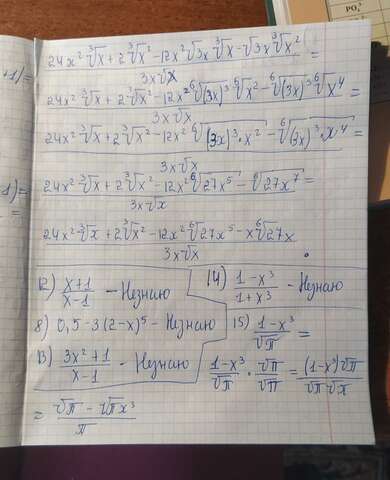 +1)=
PO₄
(24x² ∛x + 2 ∛x² - 12x² √3x ∛x - √3x ∛x²) / (3x√x) =
(24x² ∛x + 2 ∛x² - 12x² ⁶√(3x)³ ⁶√x² - ⁶√(3x)³ ⁶√x⁴) / (3x√x) =
(24x² ∛x + 2 ∛x² - 12x² ⁶√((3x)³·x²) - ⁶√((3x)³·x⁴)) / (3x√x) =
(24x² ∛x + 2 ∛x² - 12x² ⁶√27x⁵ - ⁶√27x⁷) / (3x√x) =
1)=
=
(24x² ∛x + 2∛x² - 12x² ⁶√27x⁵ - x ⁶√27x) / (3x√x)
12) (x+1)/(x-1) - Незнаю
14) (1-x³)/(1+x³) - Незнаю
8) 0,5-3(2-x)⁵ - Незнаю
15) (1-x³)/√π =
13) (3x²+1)/(x-1) - Незнаю
(1-x³)/√π · √π/√π = ((1-x³)√π)/(√π √π)
= (√π - √π x³)/π